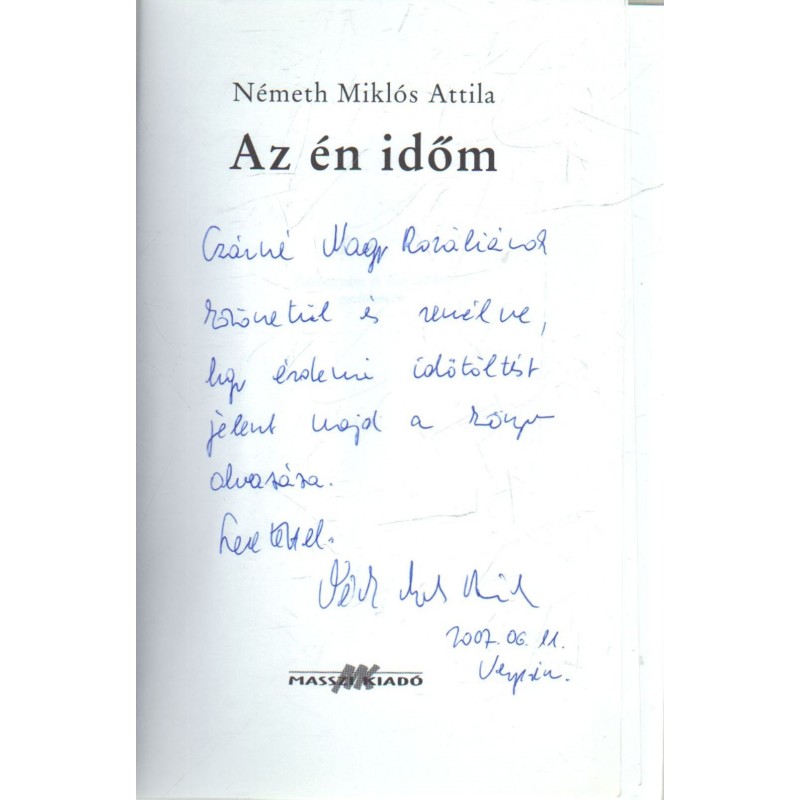 Németh Miklós Attila
Az én időm
Czárné Nagy Rozáliának
köszönettel és remélve,
hogy érdemi időtöltést
jelent majd a könyv
olvasása.
Szeretettel:
2007. 06. 11.
MASSZI KIADÓ